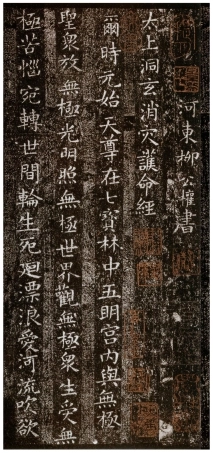 河東柳公權書
太上洞玄消灾護命經
爾時元始天尊在七寶林中五明宫內與無極
聖衆放無極光明照無極世界觀無極衆生受無
極苦惱宛轉世間輪生死迴漂浪愛河流吹欲